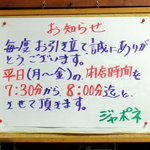 お知らせ
毎度お引き立て誠にありが
とうございます。
平日(月〜金)の、閉店時間を
7:30分から 8:00迄と、
させて頂きます。
ジャポネ